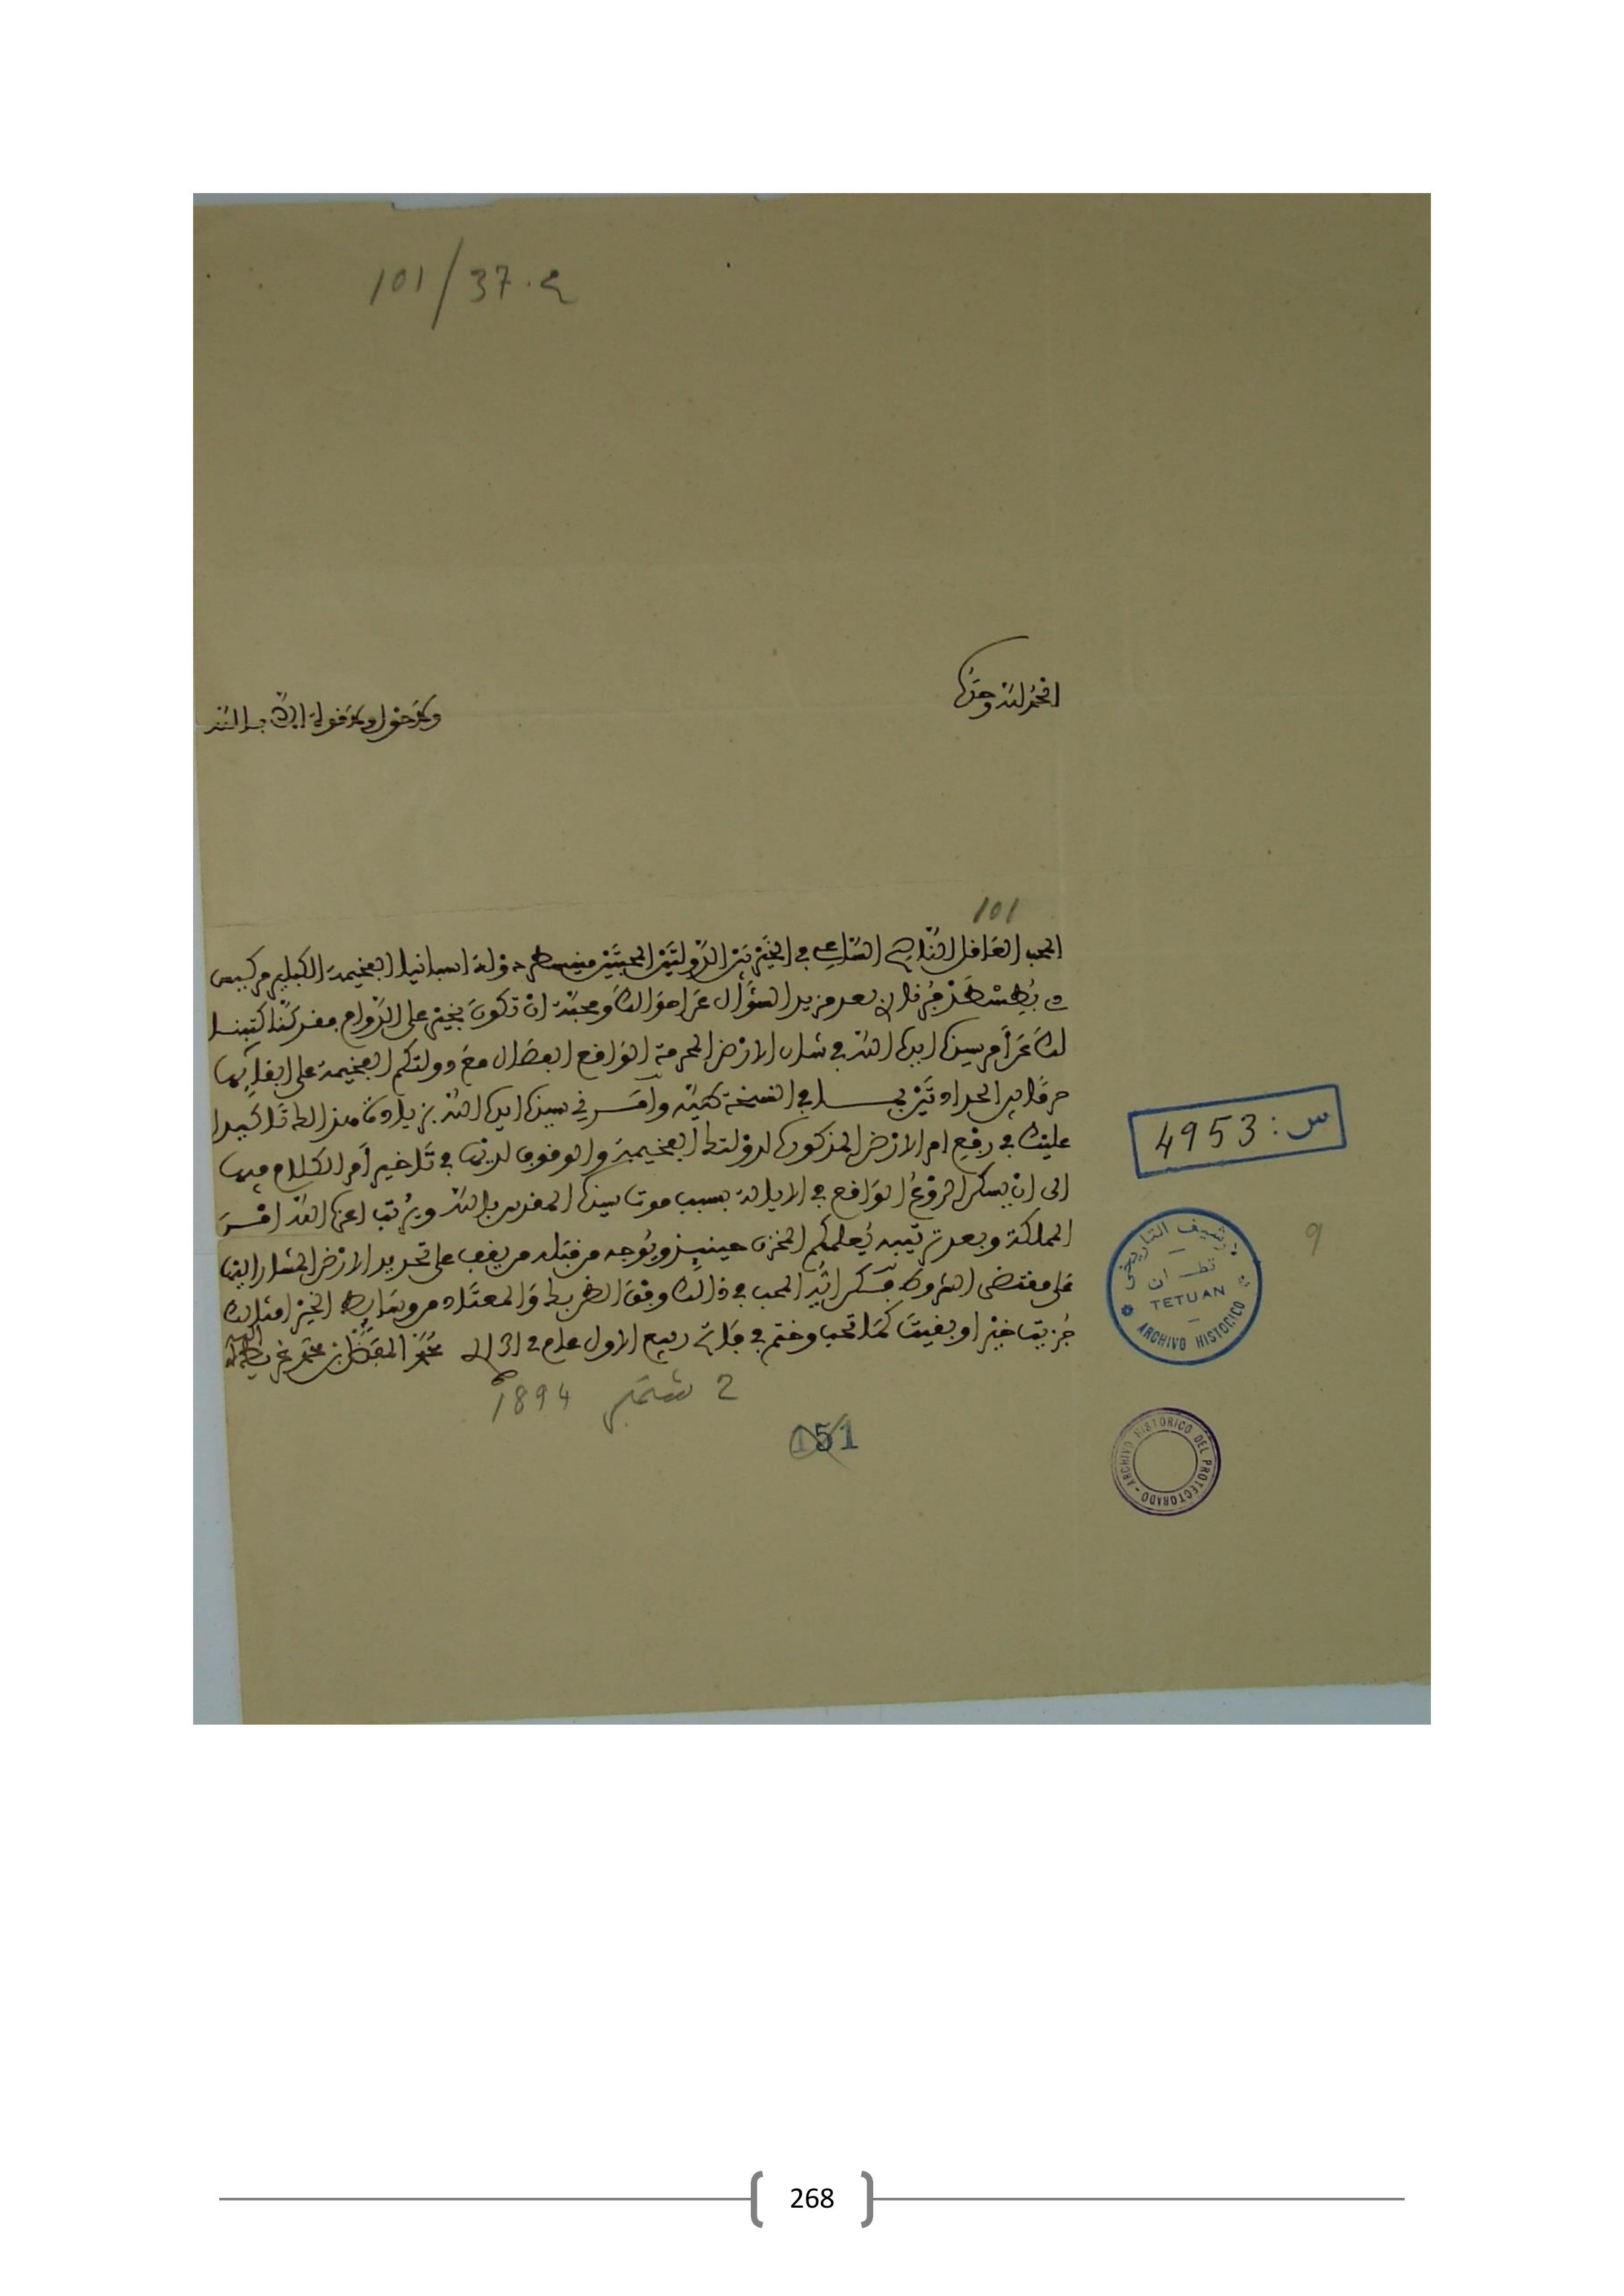 101/37.ع
الحمد لله وحده
ولا حول ولا قوة الا بالله
101
المحب العاقل الناصح الساعي في الخير بين الدولتين المحبتين منيسطر دولة اسبانيا الفخيمة الكبلير مركيس
د بطسطاذ فرناط بعد مزيد السؤال عن احوالك ومحبة ان تكون بخير على الدوام فقد كنا كتبنا
لك عن أمر سيدنا ايده الله في شان الارض المحرمة الواقع الفصال مع دولتكم الفخيمة على ابقائها
حرما بين الحدادتين بما في النسخة طيه وأمرني سيدنا ايده الله بزيادة هذا لك تاكيدا
عليك في رفع امر الارض المذكورة لدولتك الفخيمة والوقوف لديها في تاخير أمر الكلام فيها
الى ان يسكن الروع الواقع في الايالة بسبب موت سيدنا المقدس بالله ويرتب اعزه الله امر
المملكة وبعد ترتيبه يعلمكم المخزن حينئذ ويوجه من قبله من يقف على تحديد الارض المشار اليها
على مقتضى الشروط فكن ايها المحب في ذلك وفق الظن بك والمعتاد من وسايط الخير امثالك
جزيت خيرا وبقيت كما تحب وختم في فاتح ربيع الاول عام 1312 محمد المفضل بن محمد غريط
2 شتنبر 1894
151
س: 4953
9
الارشيف التاريخي
تطوان
TETUAN
ARCHIVO HISTORICO
ARCHIVO HISTORICO DEL PROTECTORADO
268